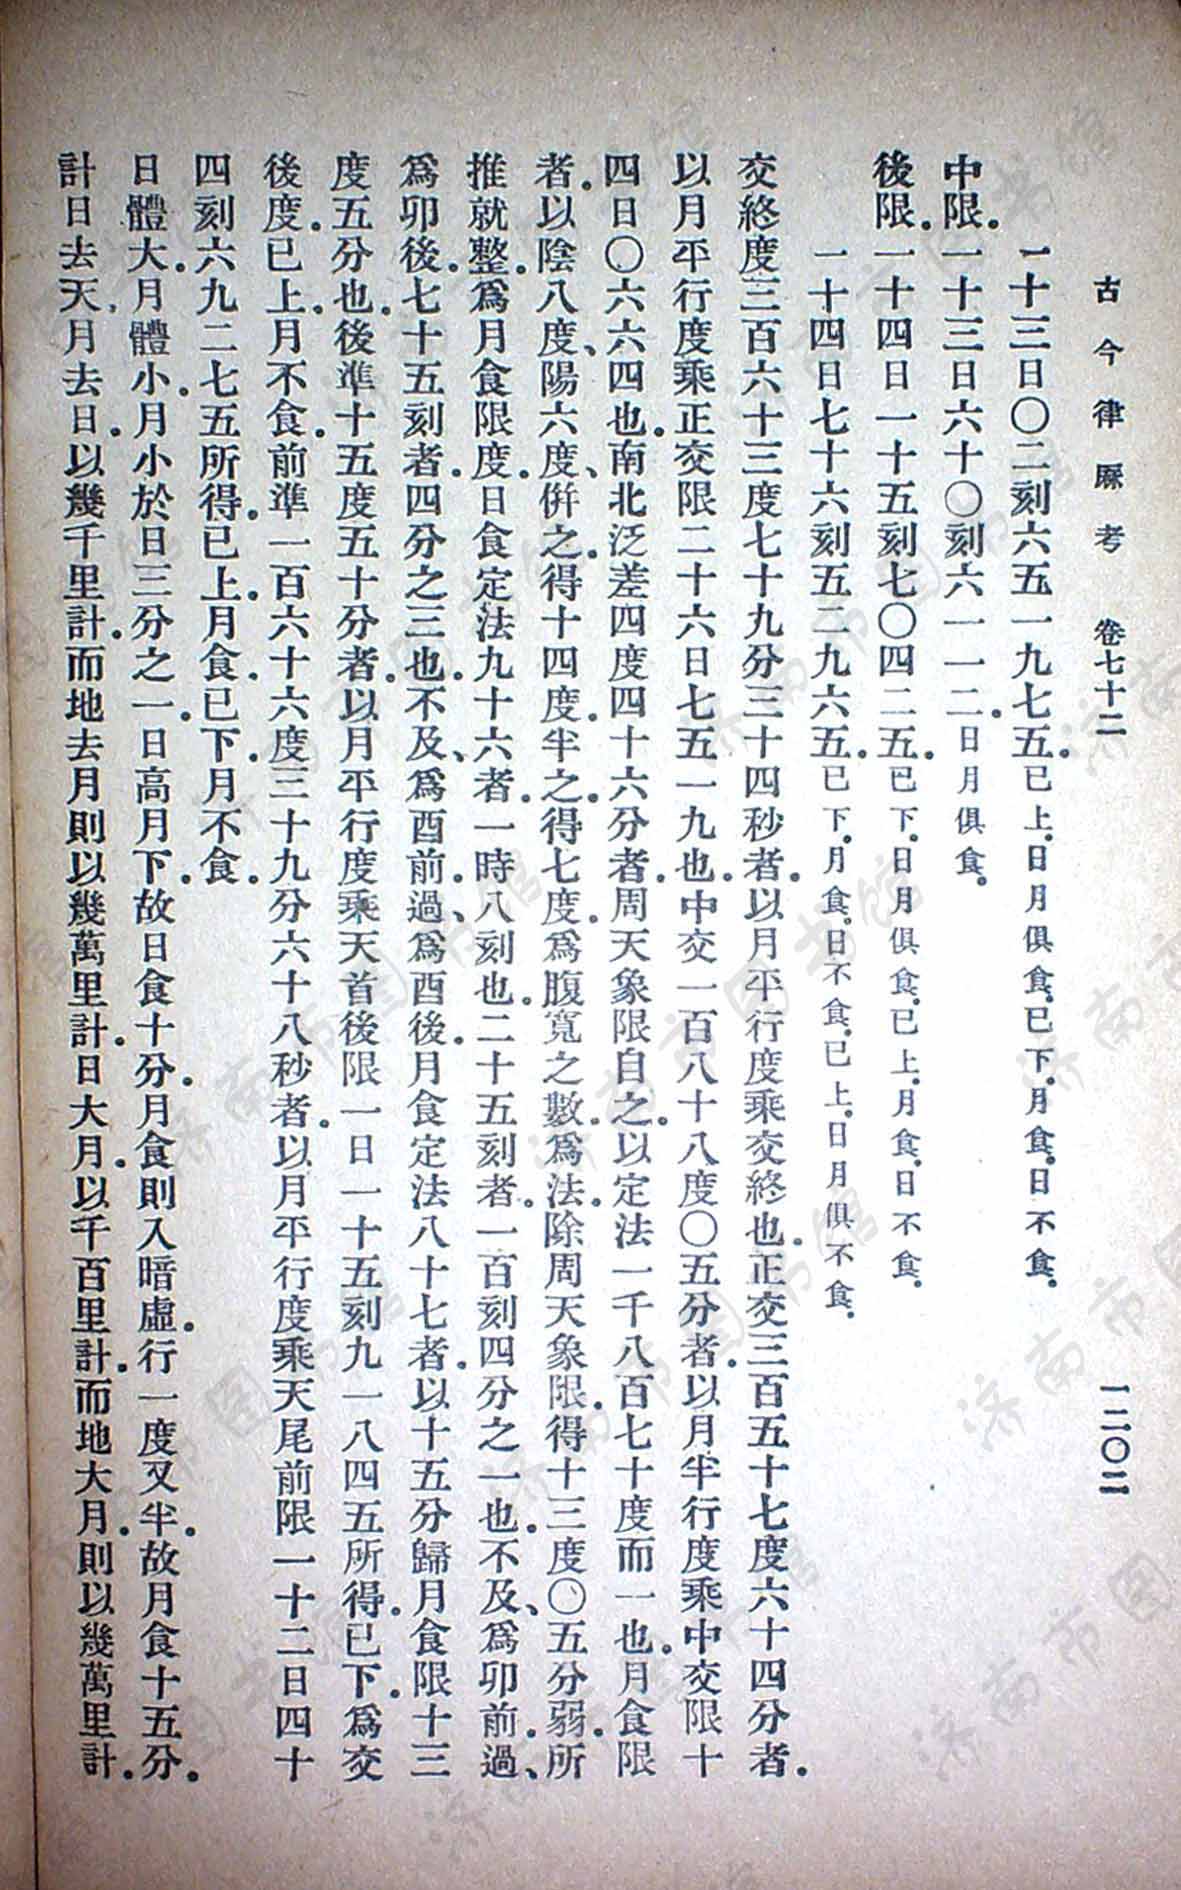 古今律厤考　卷七十二　一二〇二
一十三日〇二刻六五一九七五。已上。日月俱食。已下。月食。日不食。
中限。一十三日六十〇刻六一一二。日月俱食。
後限。一十四日一十五刻七〇四二五。已下。日月俱食。已上。月食。日不食。
一十四日七十六刻五二九六五。已下。月食。日不食。已上。日月俱不食。
交終度三百六十三度七十九分三十四秒者。以月平行度乘交終也。正交三百五十七度六十四分者。
以月平行度乘正交限二十六日七五一九也。中交一百八十八度〇五分者。以月半行度乘中交限十
四日〇六六四也。南北泛差四度四十六分者。周天象限自之。以定法一千八百七十度而一也。月食限
者。以陰八度、陽六度、併之。得十四度。半之。得七度。爲腹寬之數。爲法。除周天象限。得十三度〇五分弱。所
推就整。爲月食限度。日食定法九十六者。一時八刻也。二十五刻者。一百刻四分之一也。不及、爲卯前。過、
爲卯後。七十五刻者。四分之三也。不及、爲酉前。過、爲酉後。月食定法八十七者。以十五分歸月食限十三
度五分也。後準十五度五十分者。以月平行度乘天首後限一日一十五刻九一八四五所得。已下。爲交
後度。已上。月不食。前準一百六十六度三十九分六十八秒者。以月平行度乘天尾前限一十二日四十
四刻六九二七五所得。已上。月食。已下。月不食。
日體大。月體小。月小於日三分之一。日高月下。故日食十分。月食則入暗虛。行一度又半。故月食十五分。
計日去天。月去日。以幾千里計。而地去月則以幾萬里計。日大月。以千百里計。而地大月。則以幾萬里計。